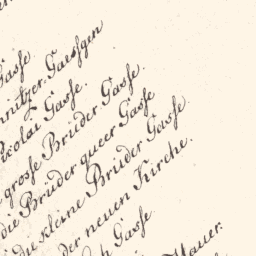 Gasse
Gaessgen
Nicolai Gasse.
grosse Brüder Gasse.
die Brüder queer Gasse
die kleine Brüder Gasse.
der neuen Kirche.
Gasse
Mauer.